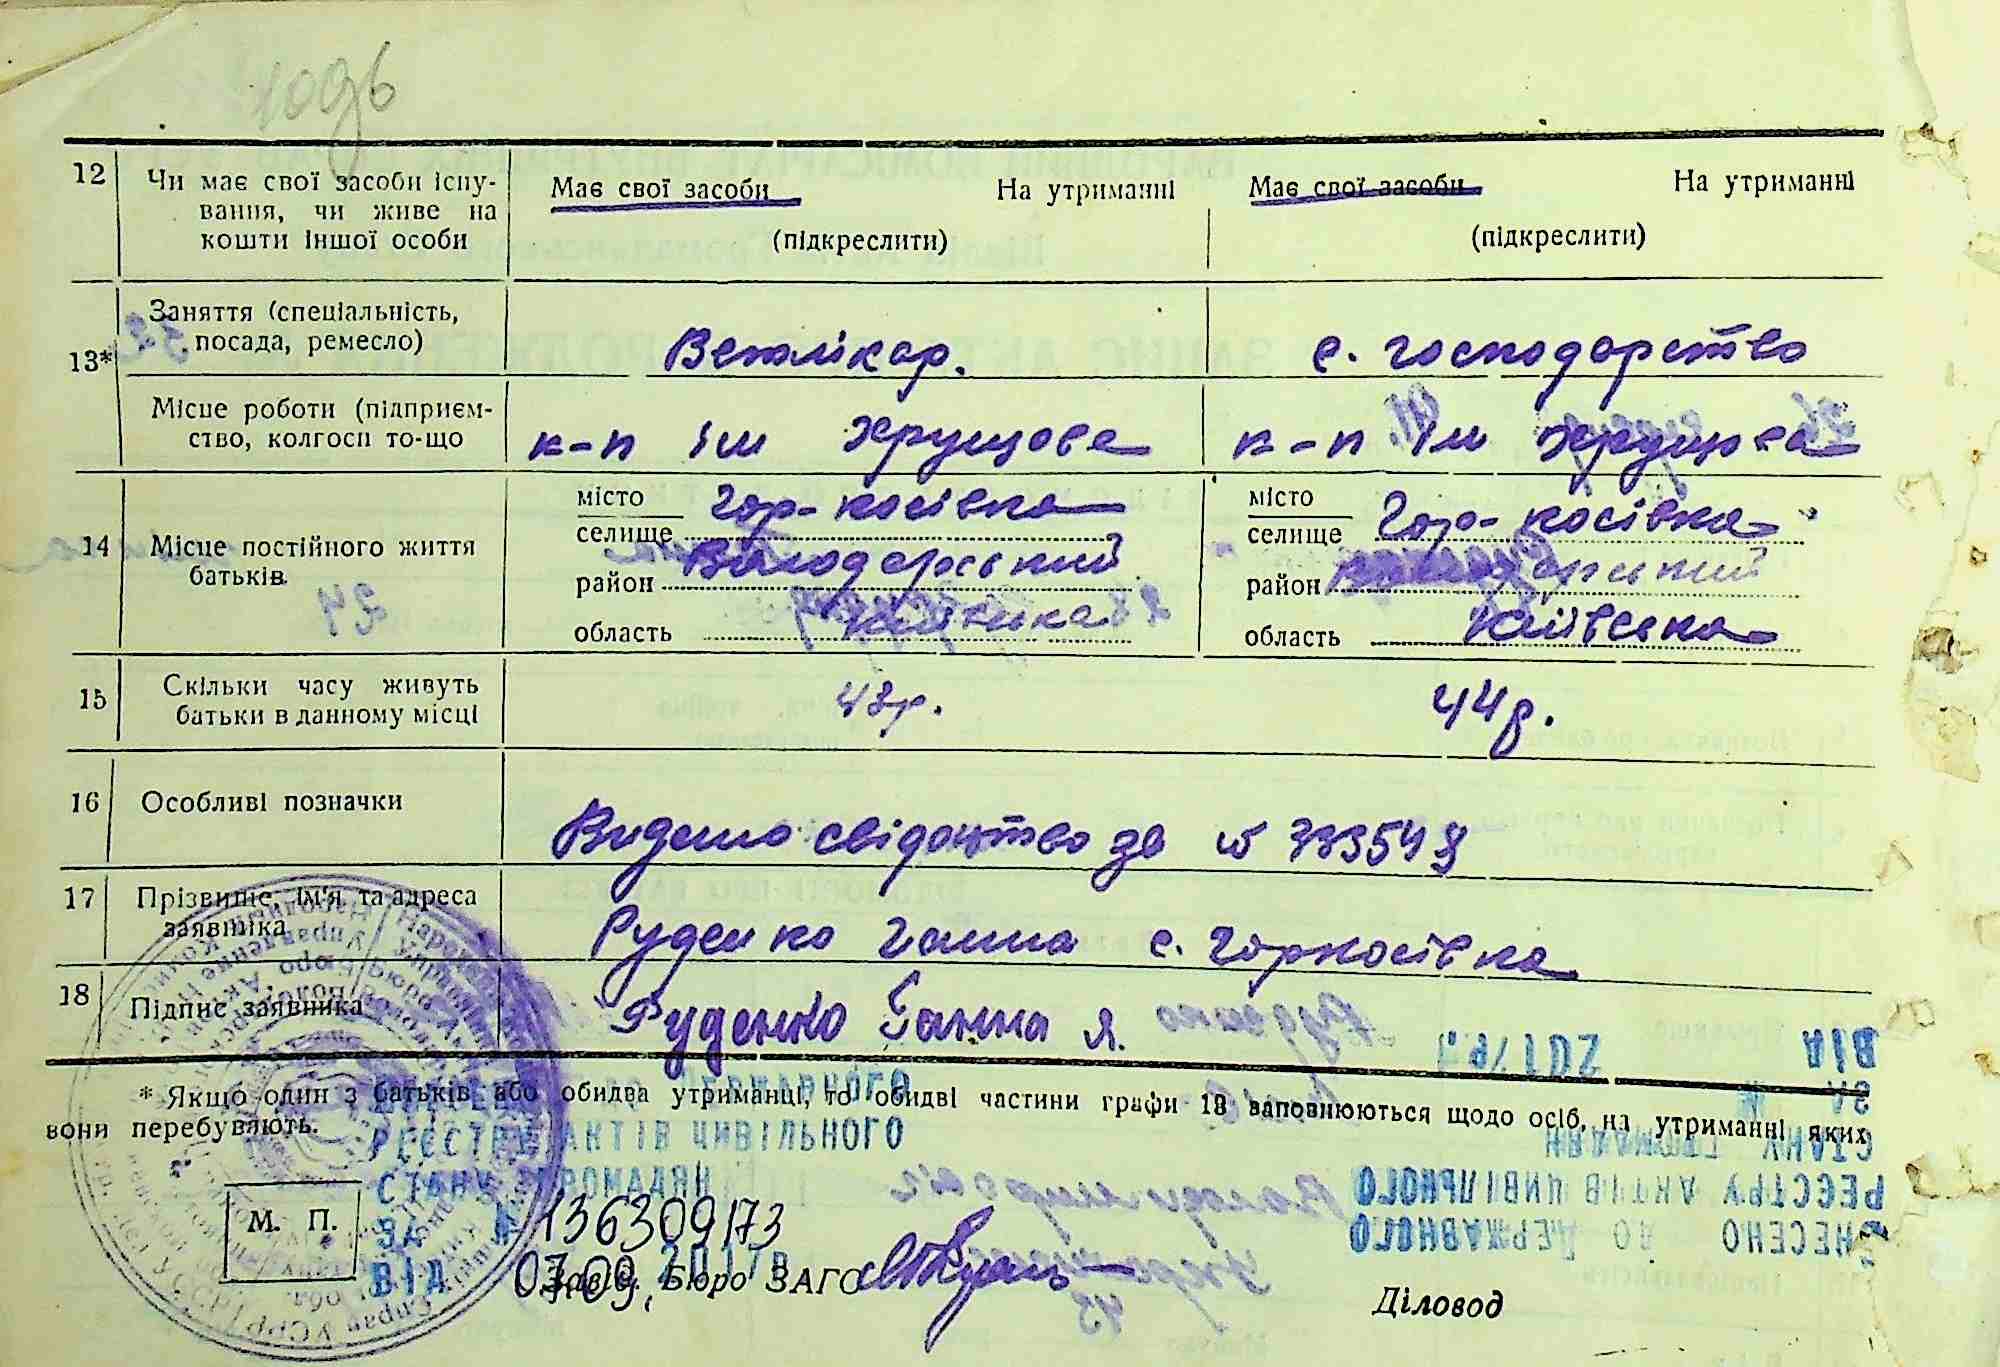 12 Чи має свої засоби існу-
вання, чи живе на
кошти іншої особи
Має свої засоби На утриманні
(підкреслити)
Має свої засоби На утриманні
(підкреслити)
13* Заняття (спеціальність,
посада, ремесло)
Ветлікар.
с. господарство
Місце роботи (підприєм-
ство, колгосп то-що
к-п ім Хрущова
к-п ім Хрущова
14 Місце постійного життя
батьків.
місто
селище Гор-косівка
район Володарський
область Київська
місто
селище Гор-косівка
район
область Київська
15 Скільки часу живуть
батьки в данному місці
43р.
44р.
16 Особливі позначки
Видано свідоцтво за
17 Прізвище, ім'я та адреса
заявника
Руденко Ганна с. Горкосівка
18 Підпис заявника
Руденко Ганна Я.
* Якщо один з батьків або обидва утриманці, то обидві частини графи 13 заповнюються щодо осіб, на утриманні яких
вони перебувають.
РЕЄСТРУ АКТІВ ЦИВІЛЬНОГО
СТАНУ ГРОМАДЯН
М. П.
ЗА № 136309173
ВІД 07.09. 2017р
Завід. Бюро ЗАГС
Діловод